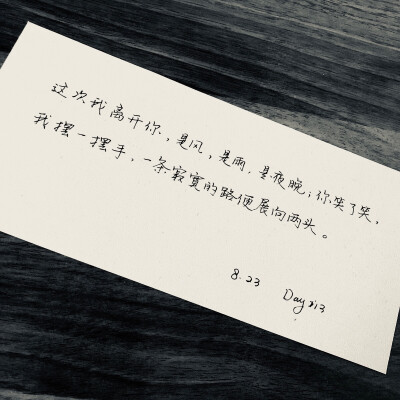 这次我离开你,是风,是雨,是夜晚;你笑了笑,
我摆一摆手,一条寂寞的路便展向两头。
8.23 Day